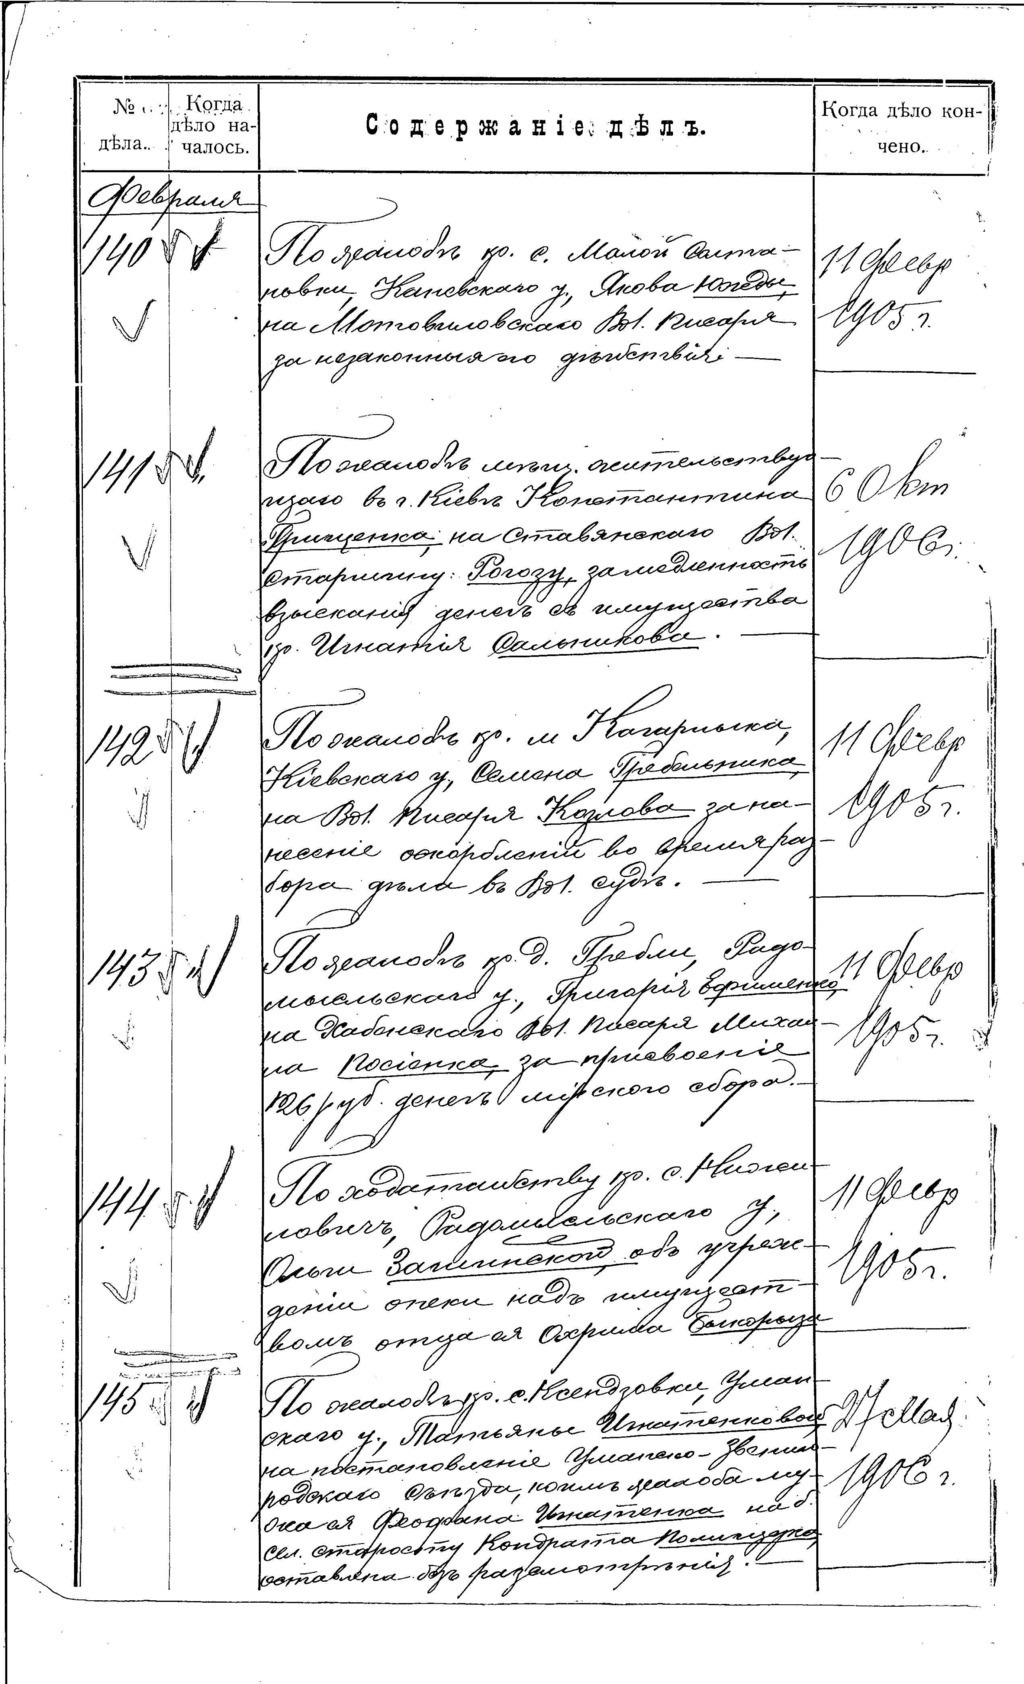 № Когда
дѣло на-
дѣла. чалось.
Содержаніе дѣлъ.
Когда дѣло кон-
чено.
Февраля
140
По жалобѣ кр. с. Малой Солта-
новки, Каневскаго у., Якова
на Мотовиловскаго Вол. Писаря
за незаконныя его дѣйствія
11 Февр
1905 г.
141
По жалобѣ мѣщ. жительствую-
щаго въ г. Кіевѣ Константина
Грищенка, на Ставянскаго Вол.
Старшину Рогозу, за медленность
взысканія денегъ съ имущества
кр. Игнатія Сальникова.
6 Окт
1906 г.
142
По жалобѣ кр. м Кагарлыка,
Кіевскаго у, Семена Гребельника,
на Вол. Писаря Козлова за на-
несеніе оскорбленій во время раз-
бора дѣла въ Вол. судѣ.
11 Февр
1905 г.
143
По жалобѣ кр. д. Гребли, Радо-
мысльскаго у., Григорія Ефименко,
на Хабенскаго Вол. Писаря Михаи-
ла Косіенка, за присвоеніе
126 руб. денегъ мірского сбора.
11 Февр
1905 г.
144
По ходатайству кр. с.
ловичъ, Радомысльскаго у.,
Ольги об учреж-
деніи опеки надъ имущест-
вомъ отца ея Охрима
11 Февр
1905 г.
145
По жалобѣ кр. с. Ксендзовки, Уман-
скаго у., Татьяны Игнатенковой
на постановленіе Уманско-Звениго-
родскаго Съѣзда, коимъ жалоба му-
жа ея Феофана Игнатенка на б.
сел. старосту Кондрата Полищука,
оставлена безъ разсмотрѣнія.
27 Мая
1906 г.